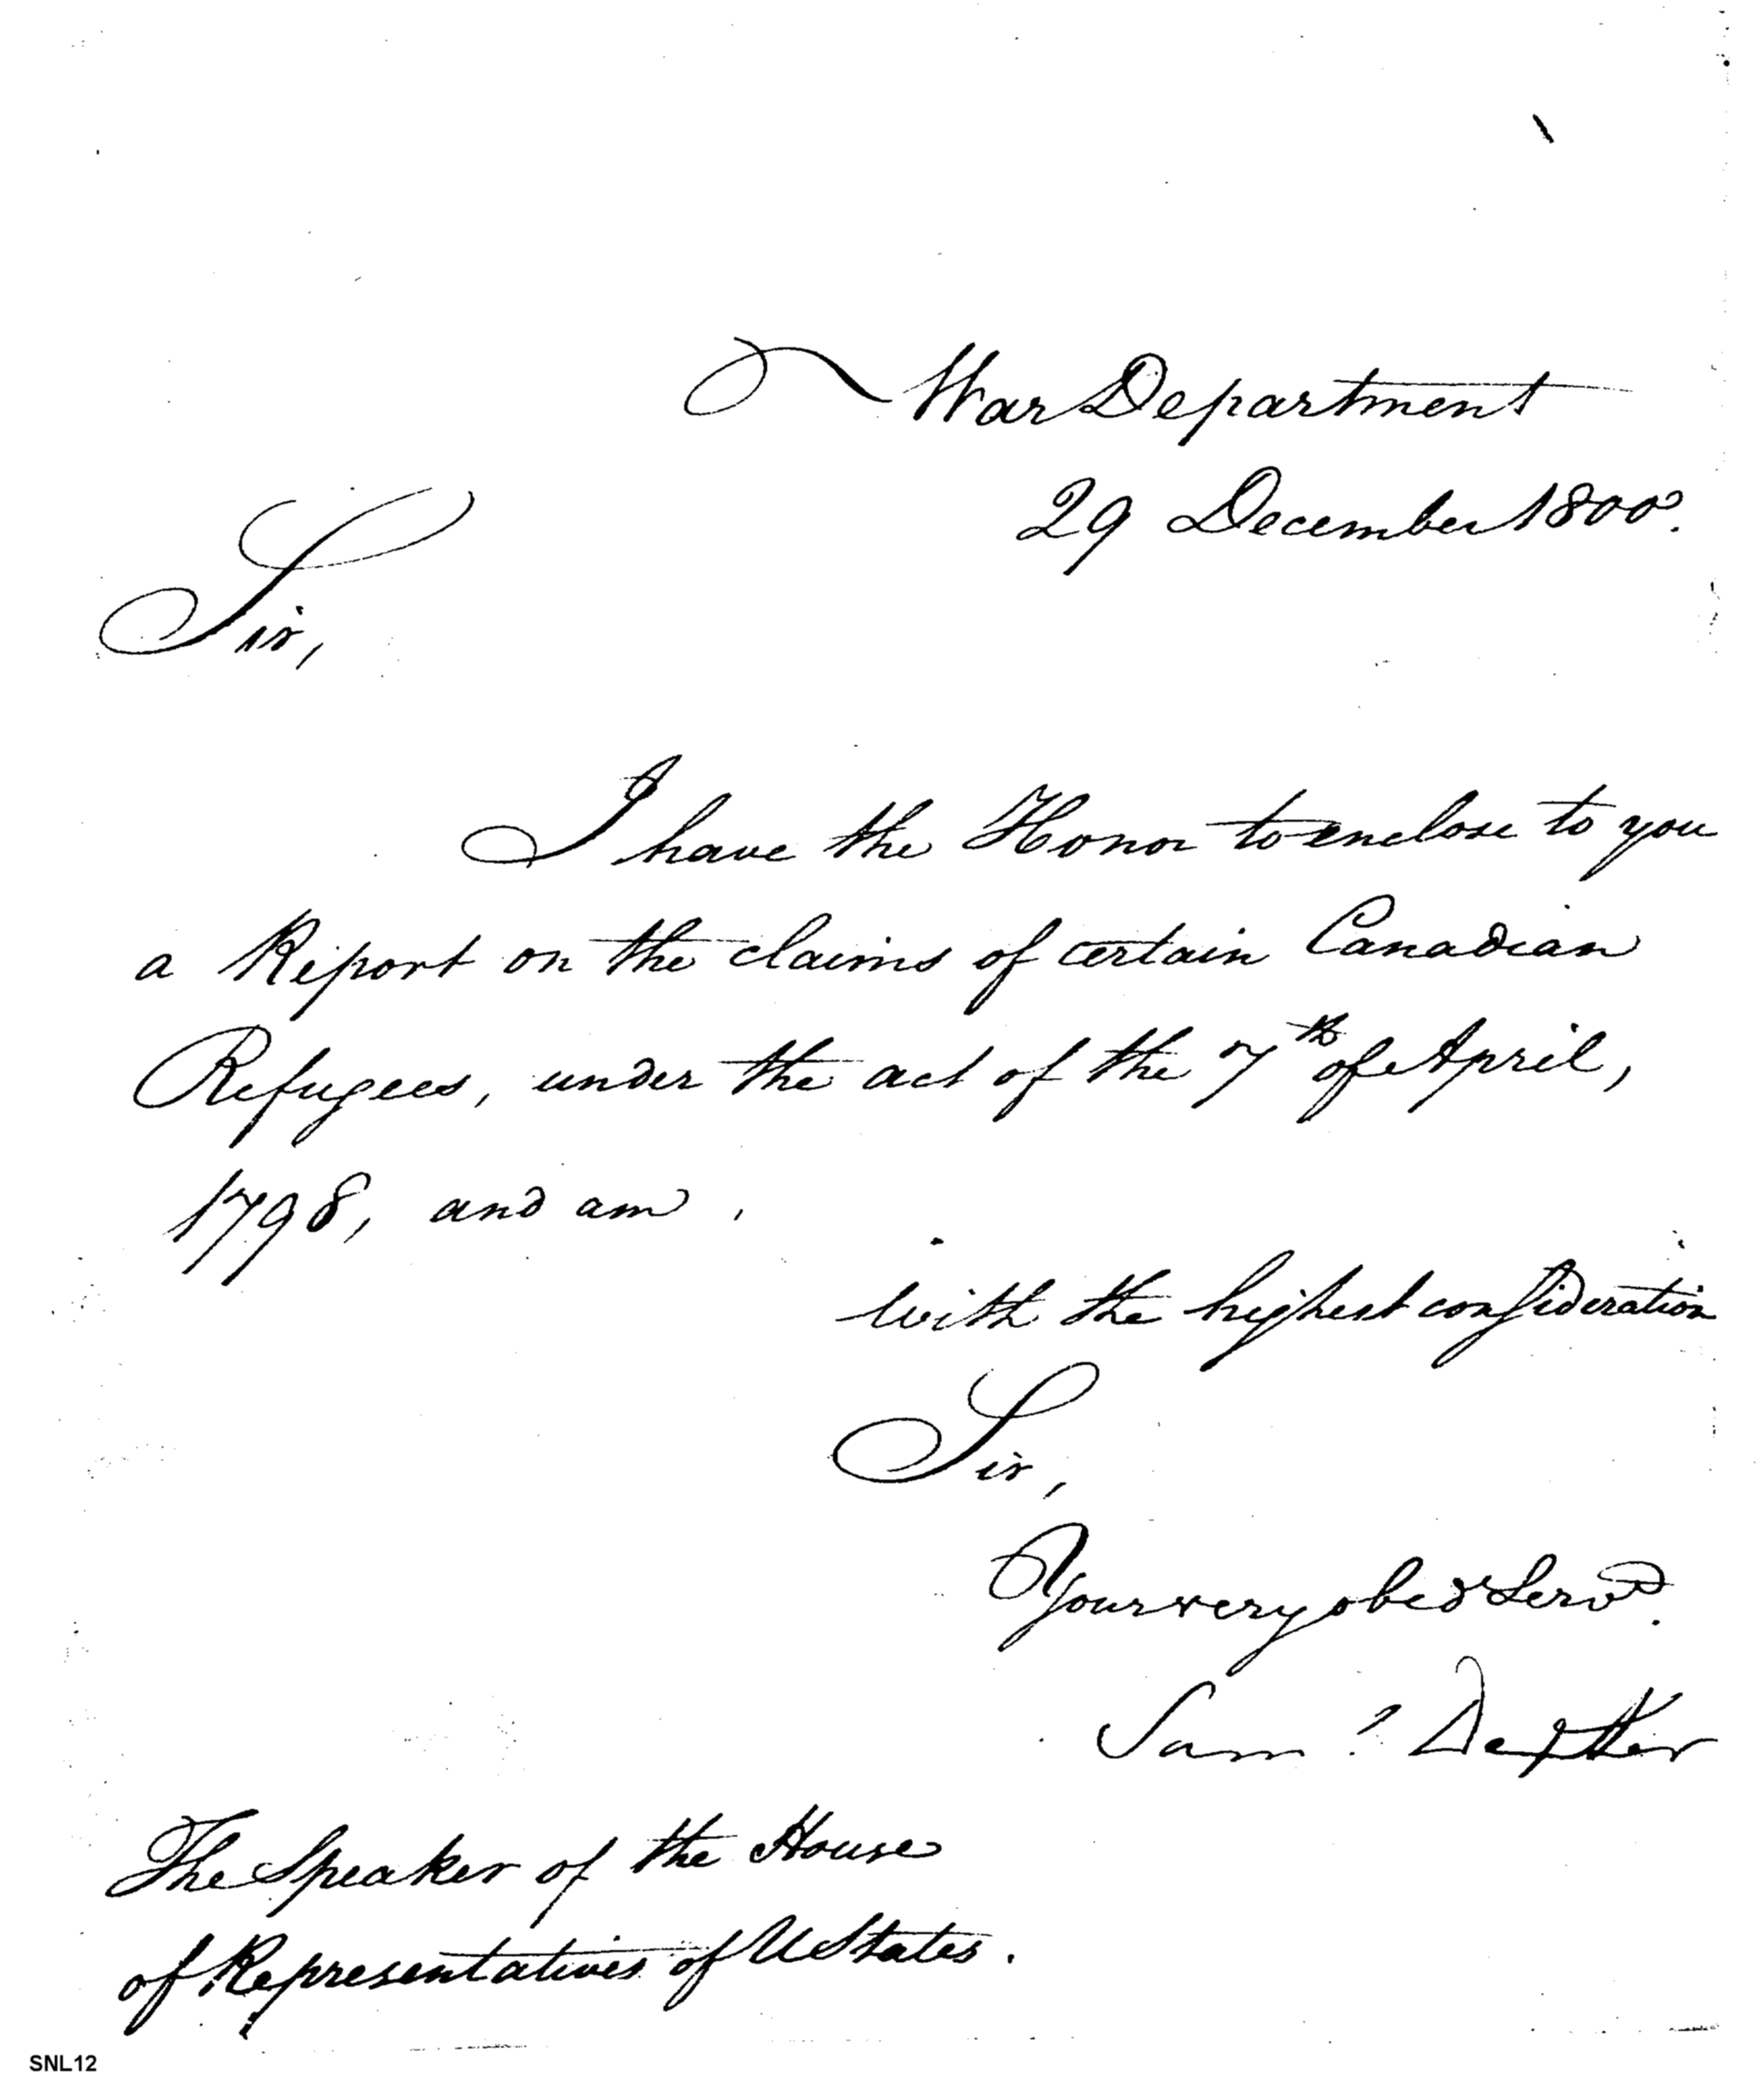 War Department
29 December 1800.
Sir,
I have the Honor to enclose to you
a Report on the claims of certain Canadian
Refugees, under the act of the 7th of April,
1798, and am,
with the highest consideration
Sir,
Your very obed Servt.
Saml Dexter
The Speaker of the House
of Representatives of UStates.
SNL12